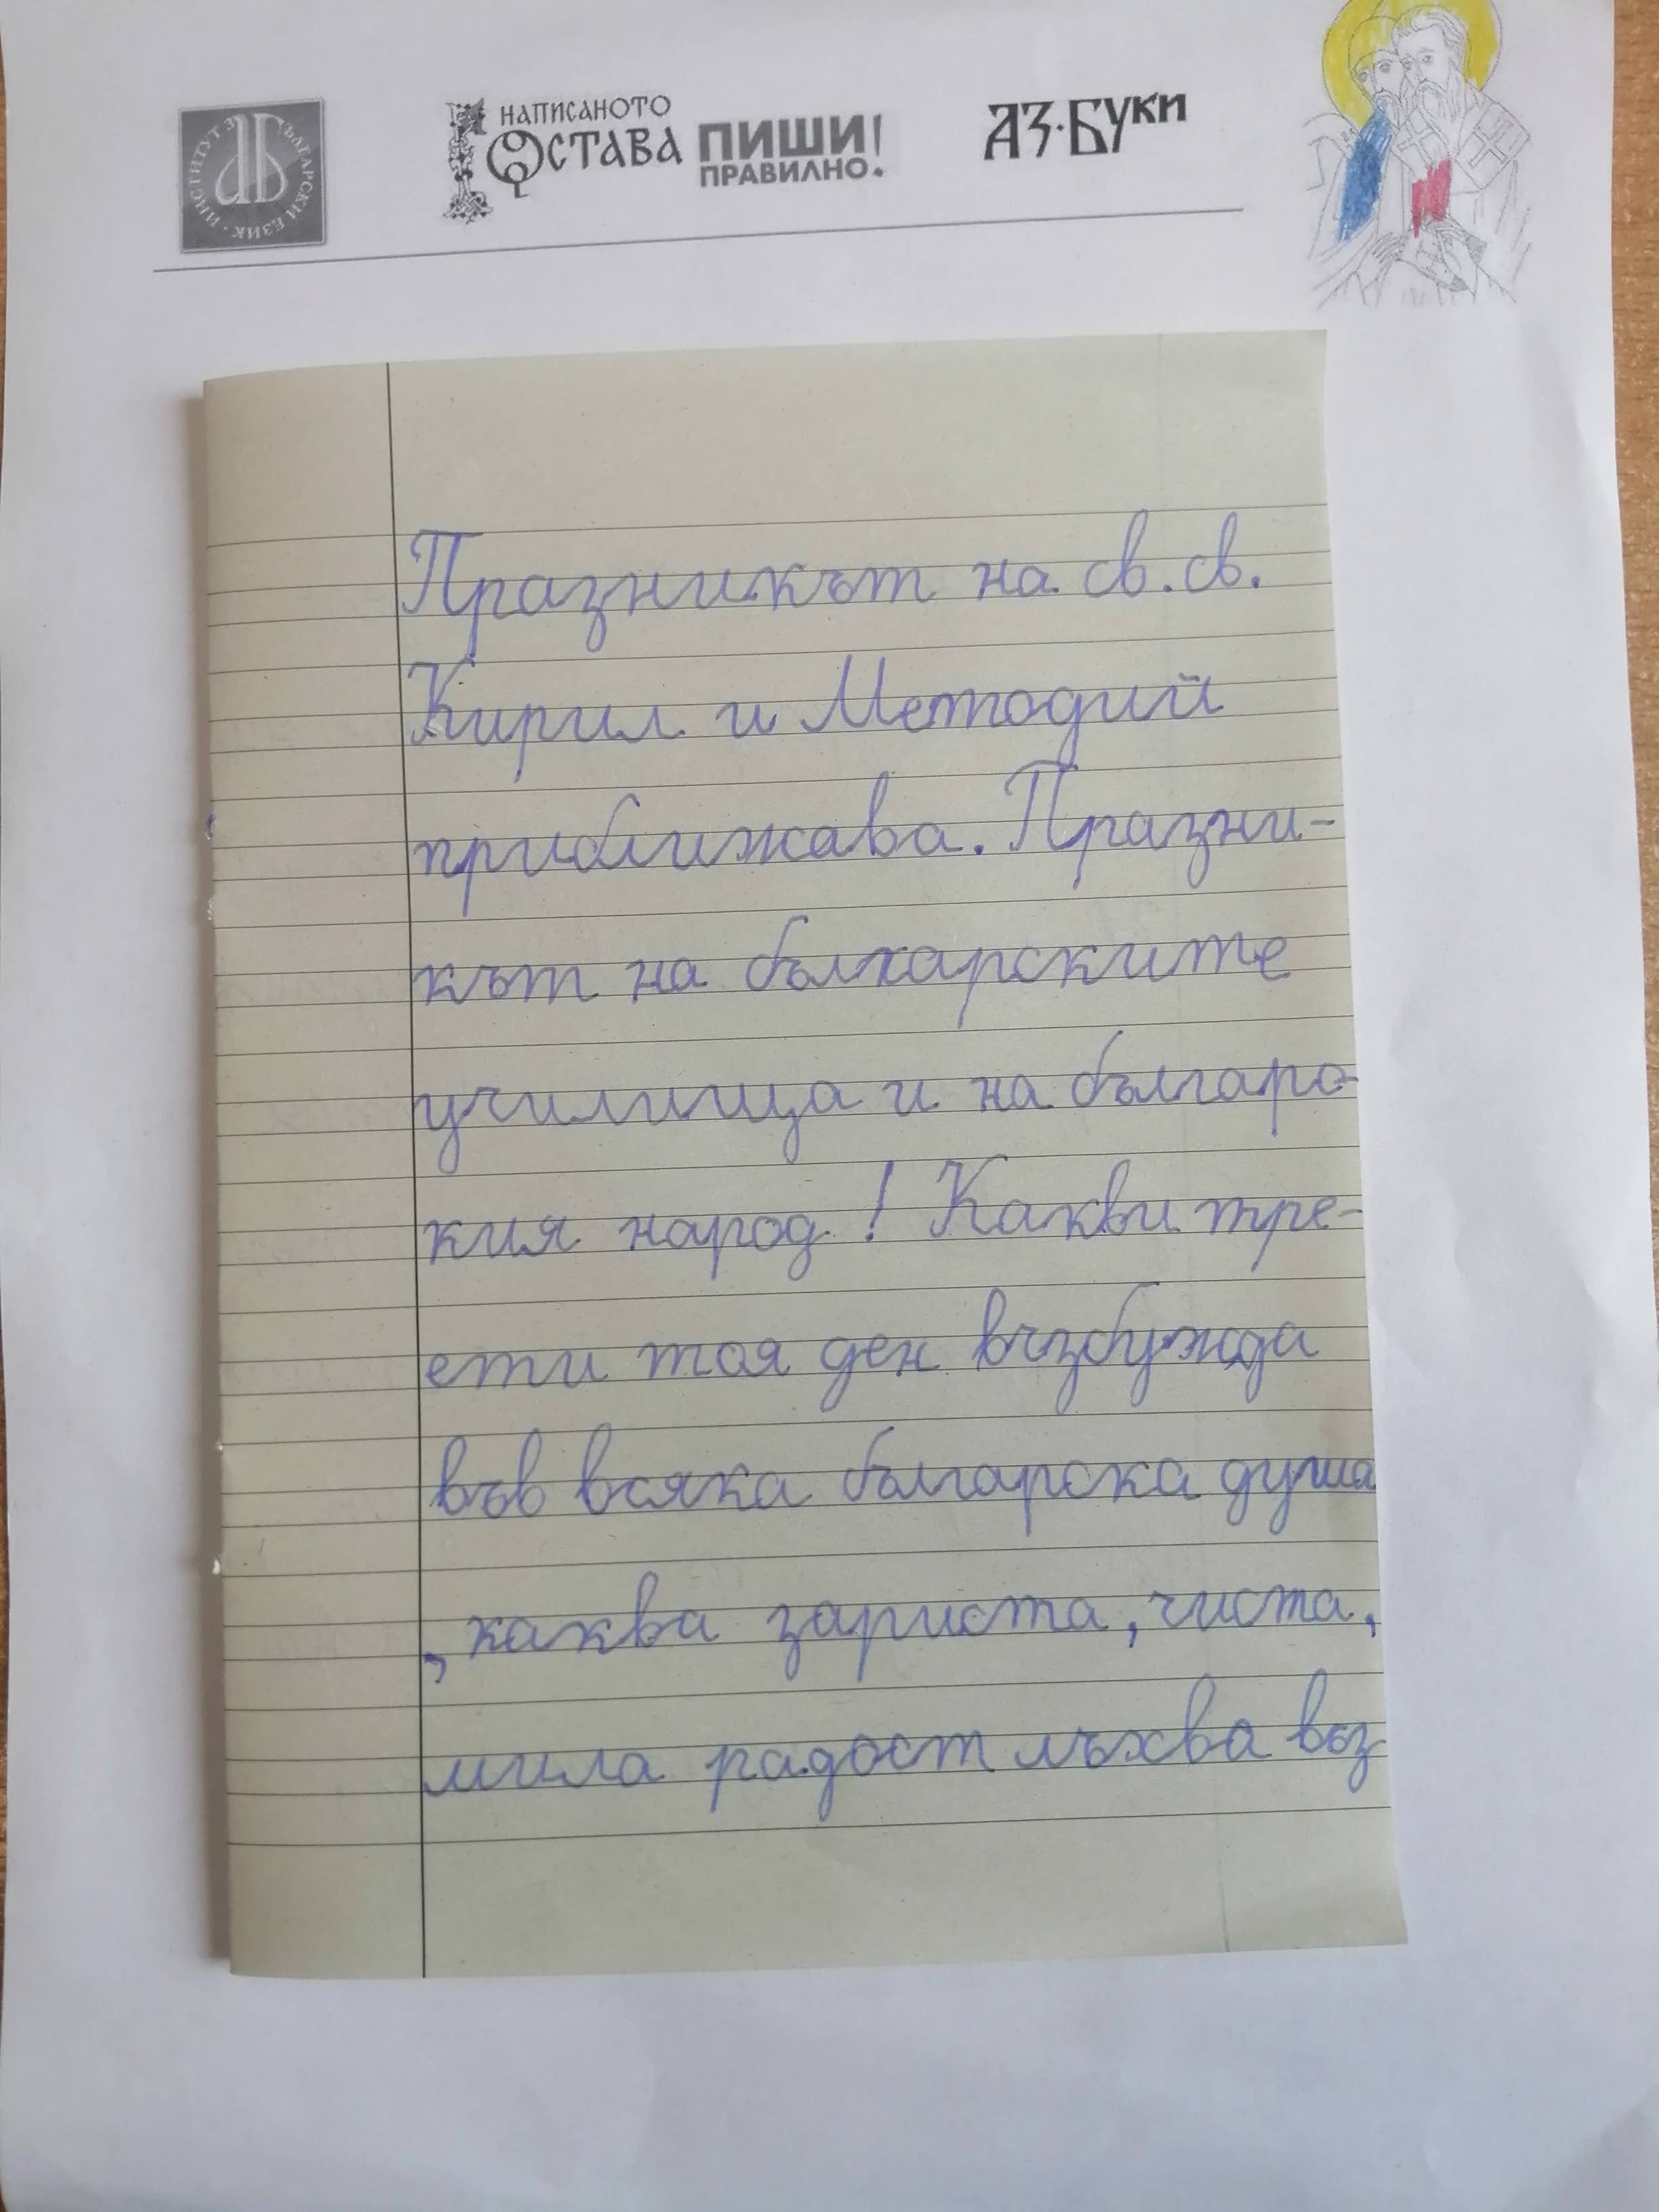 ИНСТИТУТ ЗА БЪЛГАРСКИ ЕЗИК
НАПИСАНОТО
ОСТАВА
ПИШИ!
ПРАВИЛНО.
АЗ·БУКИ
Празникът на св. св.
Кирил и Методий
приближава. Празни-
кът на бълхарските
училища и на българс-
кия народ! Какви тре-
ети тоя ден възбужда
във всяка българска душа
, каква зариста, чиста,
мила радост лъхва въз